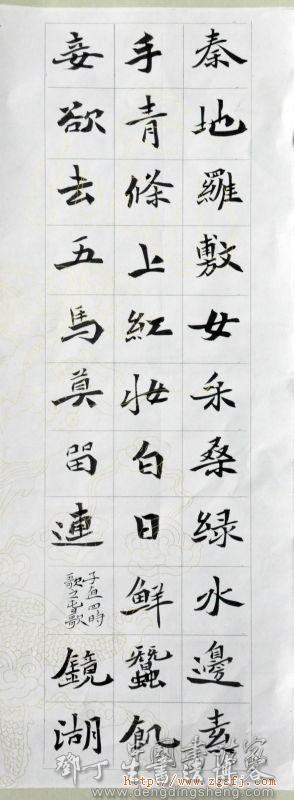 秦地羅敷女采桑緑水邊素
手青條上紅妝白日鮮蠶飢
妾欲去五馬莫留連
子夜四時
歌之春歌
鏡湖
鄧丁生書畫博客
www.dengdingsheng.com